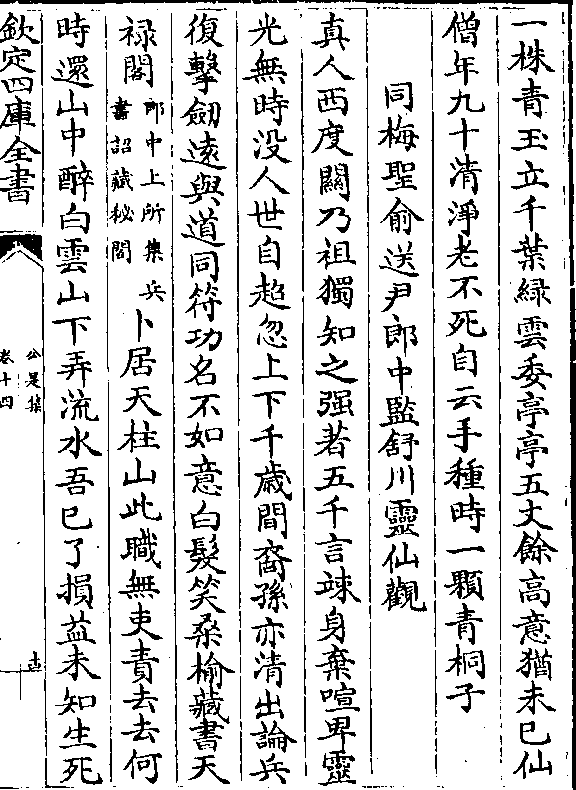 一株青玉立千葉綠雲委亭亭五丈餘高意猶未已仙
僧年九十清淨老不死自云手種時一顆青桐子
同梅聖俞送尹郎中監舒川靈仙觀
真人西度關乃祖獨知之强著五千言竦身棄喧卑靈
光無時没人世自超忽上下千歲間裔孫亦清出論兵
復擊劒遠與道同符功名不如意白髮笑桑榆藏書天
禄閣郎中上所集兵書詔藏秘閣卜居天柱山此職無吏責去去何
時還山中醉白雲山下弄流水吾已了損益未知生死
欽定四庫全書
公是集
卷十四
十五